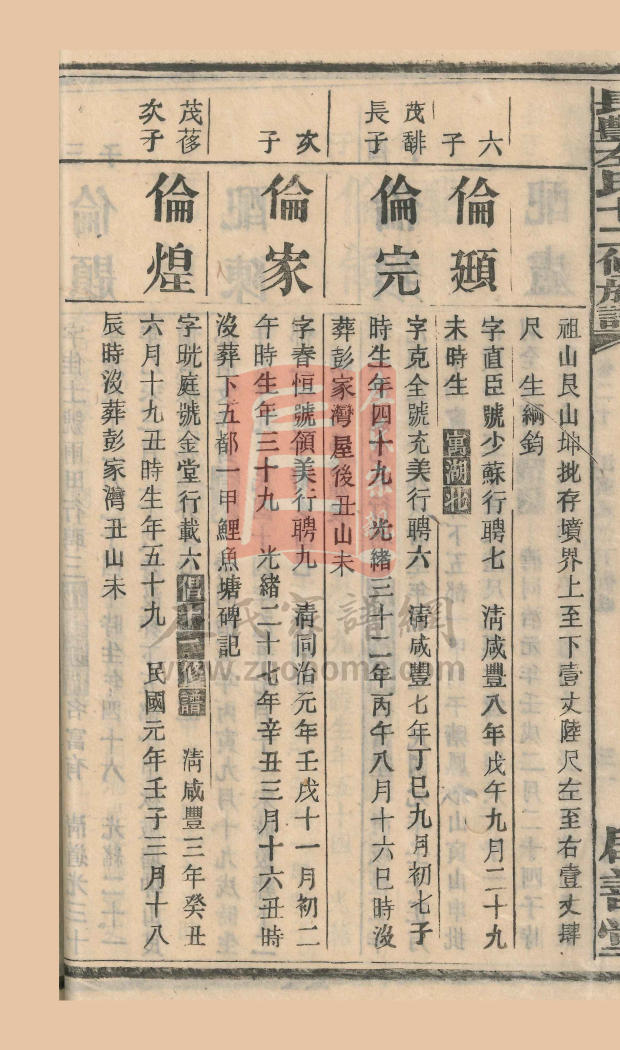 長豐左氏十二修族譜
啟善堂
祖山艮山坤批存墳界上至下壹丈陸尺左至右壹丈肆
尺　生綱鈞
六
子
倫頲
字直臣號少蘇行聘七　清咸豐八年戊午九月二十九
未時生　寓湖北
茂馡
長子
倫完
字克全號充美行聘六　清咸豐七年丁巳九月初七子
時生年四十九　光緒三十二年丙午八月十六巳時沒
葬彭家灣屋後丑山未
次
子
倫家
字春恒號領美行聘九　清同治元年壬戌十一月初二
午時生年三十九　光緒二十七年辛丑三月十六丑時
沒葬下五都一甲鯉魚塘碑記
茂䓲
次子
倫煌
字晄庭號金堂行載六倡十一修譜　清咸豐三年癸丑
六月十九丑時生年五十九　民國元年壬子三月十八
辰時沒葬彭家灣丑山未
www.zuohome.com